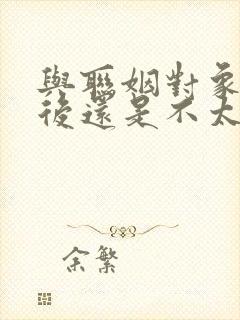 與聯姻對象
後還是不太
余繁